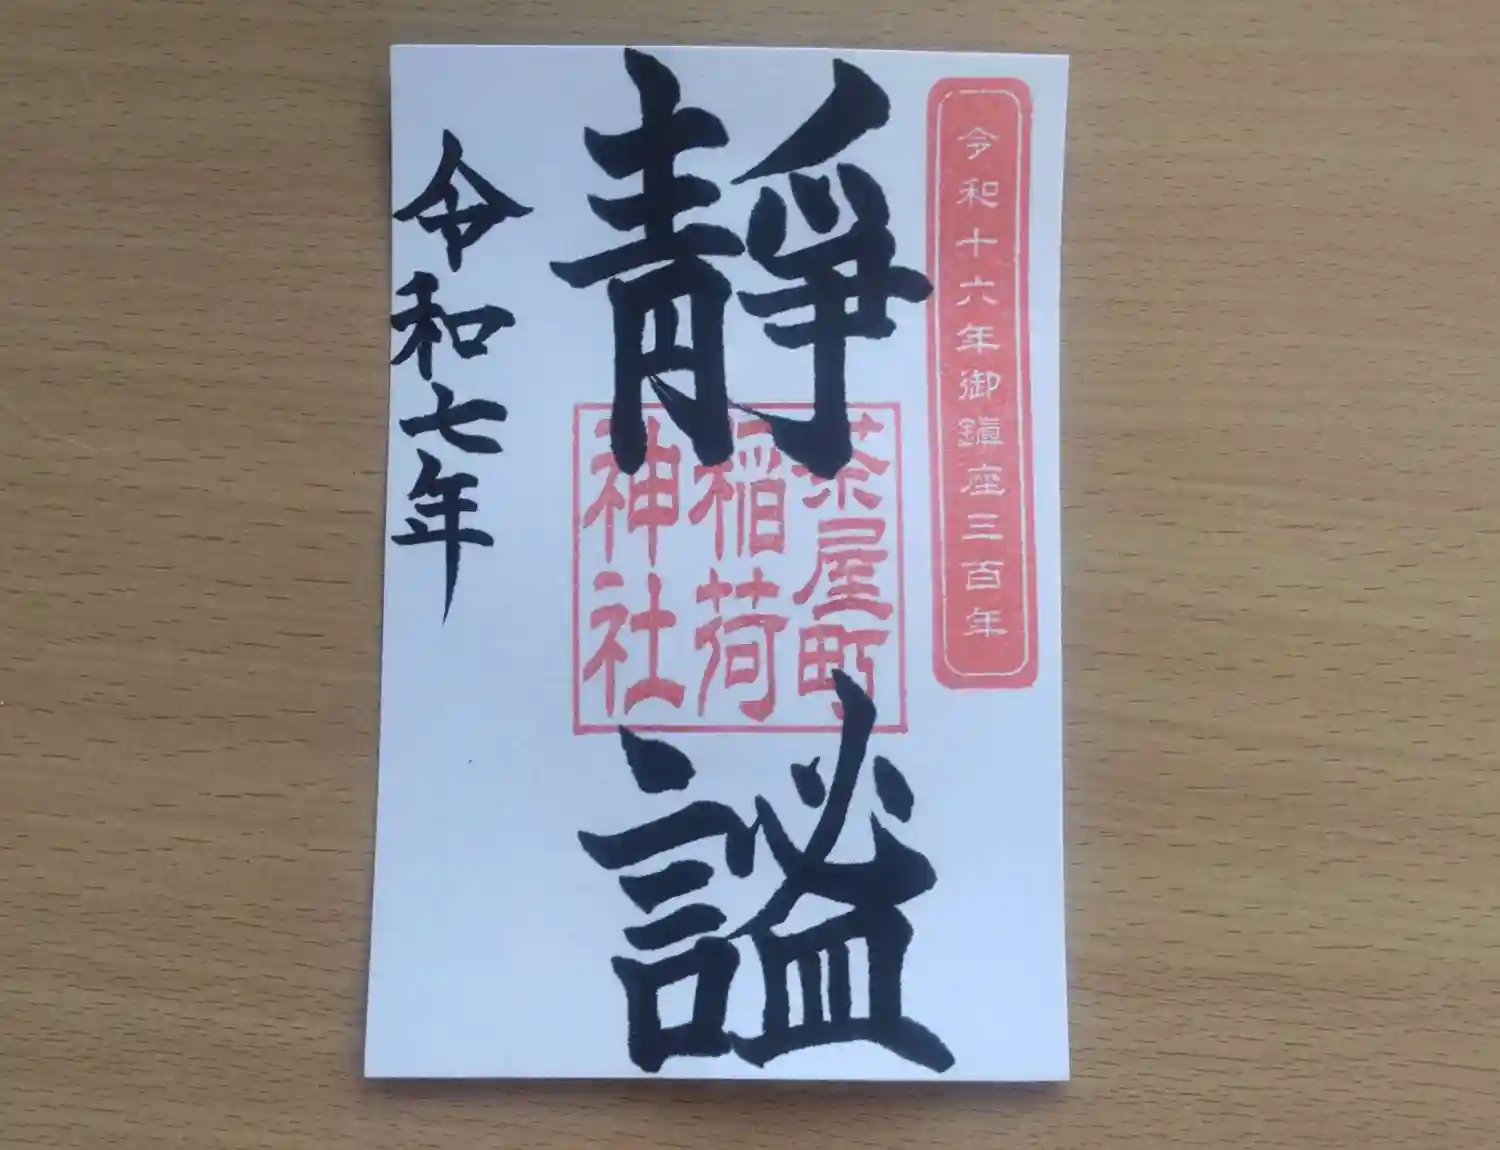 令和十六年御鎭座三百年
靜謐
茶屋町
稲荷
神社
令和七年